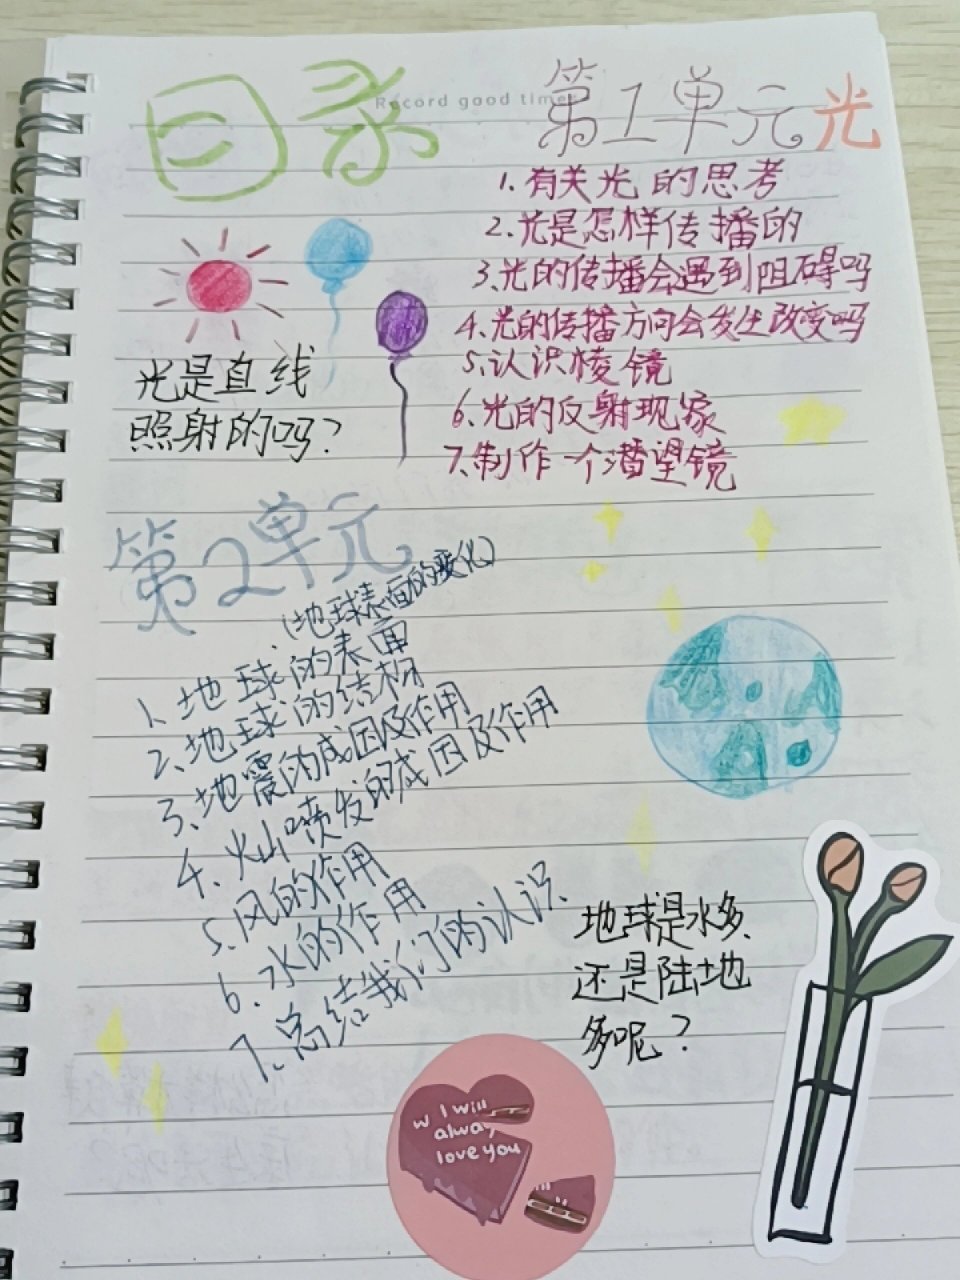 目录
Record good time
第1单元光
1.有关光的思考
2.光是怎样传播的
3.光的传播会遇到阻碍吗
4.光的传播方向会发生改变吗
5.认识棱镜
6.光的反射现象
7.制作一个潜望镜
光是直线
照射的吗?
第2单元
(地球表面的变化)
1、地球的表面
2、地球的结构
3、地震的成因及作用
4、火山喷发的成因及作用
5、风的作用
6、水的作用
7、总结我们的认识
地球是水多
还是陆地
多呢?
I will
alway
love you